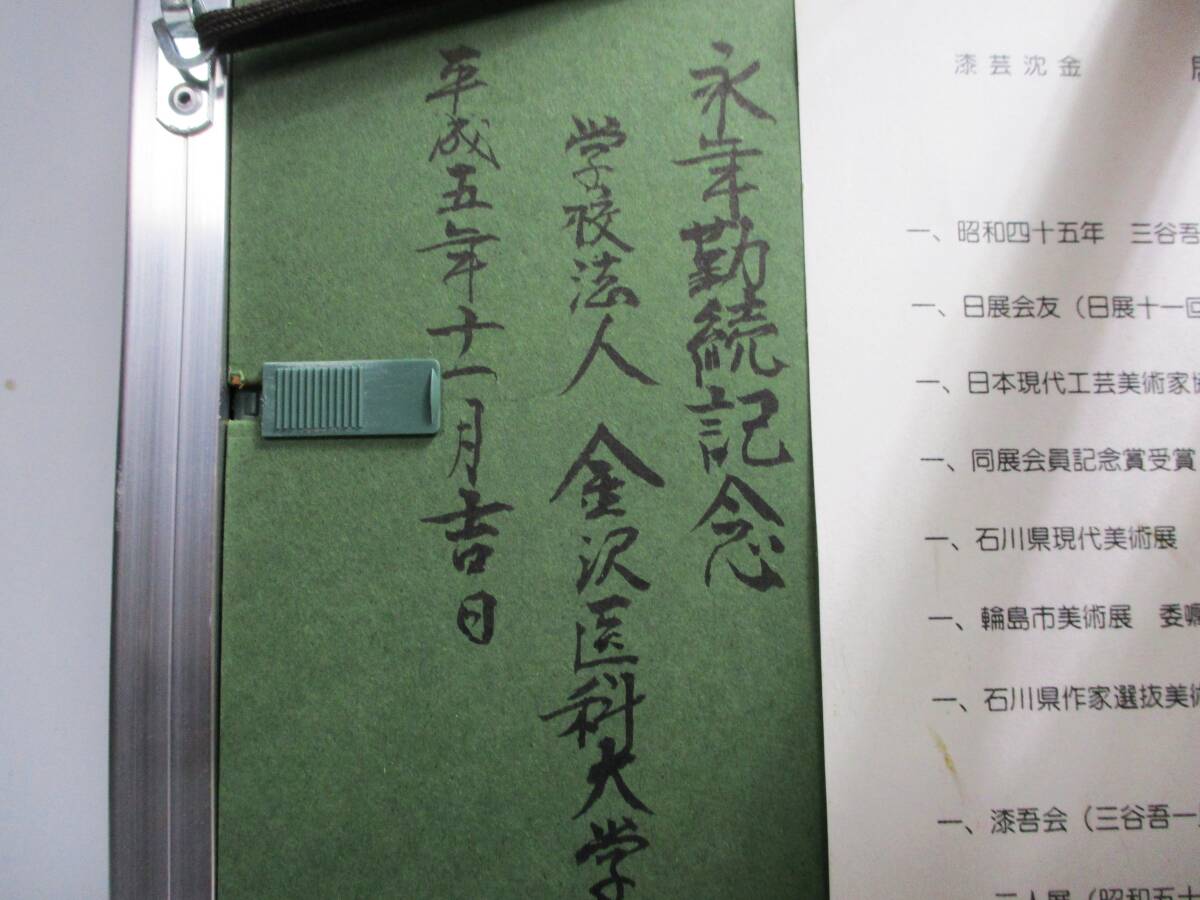 永年勤続記念
学校法人 金沢医科大学
平成五年十一月吉日
漆芸沈金
一、昭和四十五年 三谷吾
一、日展会友（日展十一回
一、日本現代工芸美術家協
一、同展会員記念賞受賞
一、石川県現代美術展
一、輪島市美術展 委嘱
一、石川県作家選抜美術
一、漆吾会（三谷吾一
二人展（昭和五十